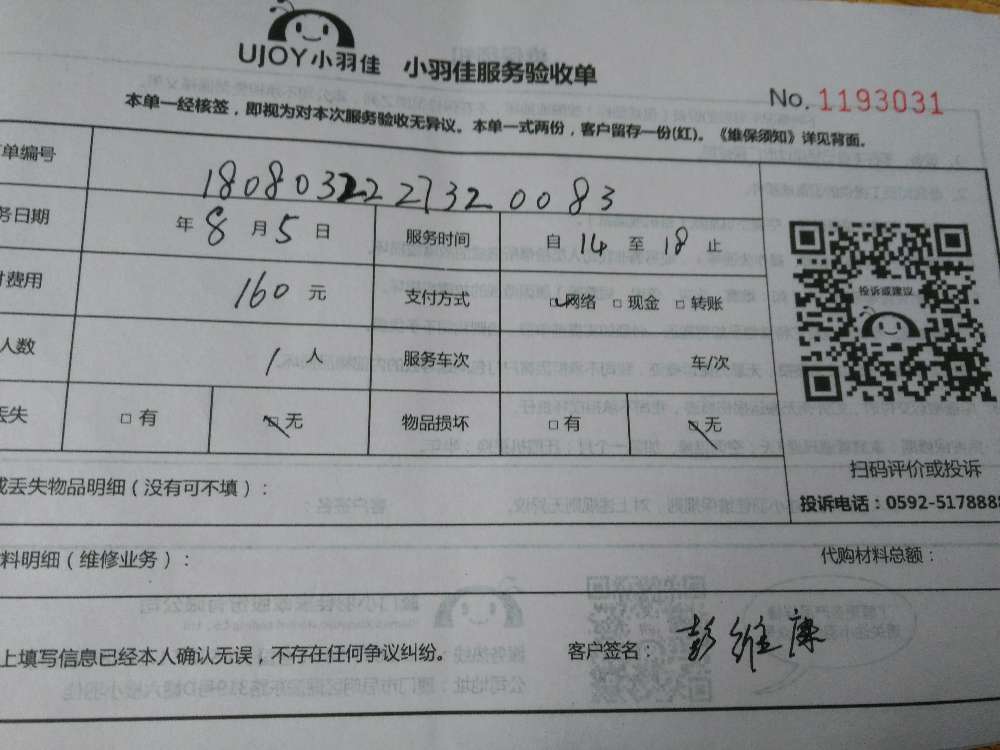 UJOY小羽佳 小羽佳服务验收单
No. 1193031
本单一经核签，即视为对本次服务验收无异议。本单一式两份，客户留存一份(红)。《维保须知》详见背面。
单编号 18080322273200083
务日期 年8月5日 服务时间 自14至18止
费用 160元 支付方式 网络 现金 转账
人数 1人 服务车次 车/次
丢失 有 无 物品损坏 有 无
投诉或建议
扫码评价或投诉
投诉电话：0592-5178888
或丢失物品明细（没有可不填）：
料明细（维修业务）： 代购材料总额：
上填写信息已经本人确认无误，不存在任何争议纠纷。 客户签名：彭维康